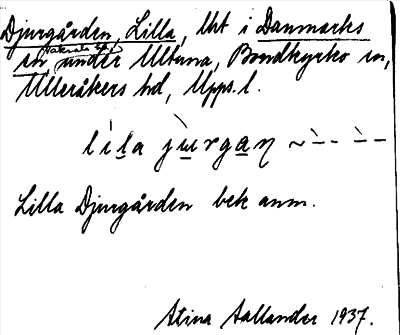 Djurgården, Lilla, lht i Danmarks
sn, under Ultuna, Bondkyrko sn,
Ulleråkers hd, Upps. l.
lìla jùrgaɳ ~ ̀-- ̀--
Lilla Djurgården bek anm.
Stina Aallander 1937.